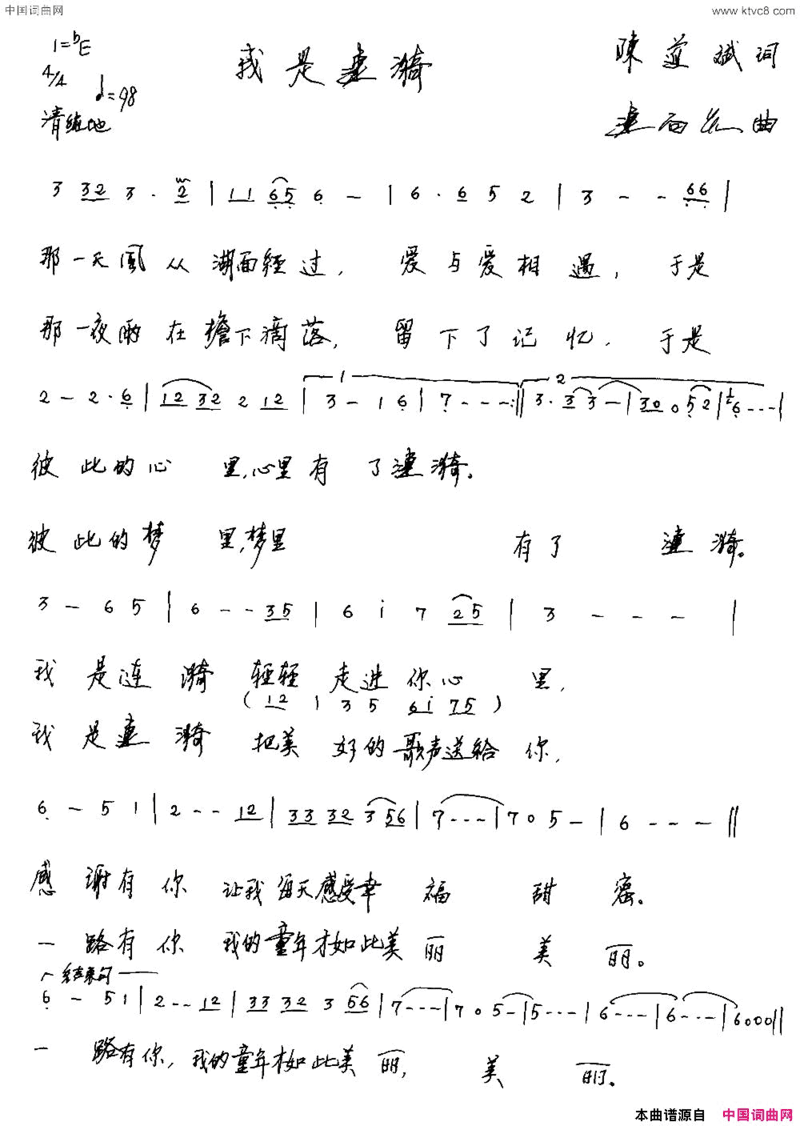 中国词曲网 www.ktvc8.com
1=♭E
我是漣漪 陳道斌词
4/4 ♩=98
清纯地 曲
3 32 3· 2 | 11 65 6 — | 6· 6 5 2 | 3 - - 66 |
那一天風从湖面經过，爱与爱相遇，于是
那一夜雨在檐下滴落，留下了记忆，于是
2 — 2·6 | 12 32 2 12 | 3 — 1 6 | 7 - - - :|| 3· 3 3 — | 30 0 52 | 6 - - - |
彼此的心里，心里有了漣漪。
彼此的梦里，梦里有了漣漪。
3 — 6 5 | 6 - - 35 | 6 i 7 25 | 3 - - - |
我是涟漪轻轻走进你心里，
( 12 1 3 5 6i 75 )
我是漣漪把美好的歌声送给你，
6 — 5 1 | 2 - - 12 | 33 32 3 56 | 7 - - - | 7 0 5 — | 6 - - - ||
感谢有你让我每天感受幸福甜蜜。
一路有你我的童年才如此美丽美丽。
结束句
6 — 5 1 | 2 - - 12 | 33 32 3 56 | 7 - - - | 7 0 5 — | 5 - - - | 6 - - - | 6 - - - | 6000 ||
一路有你，我的童年才如此美丽，美丽。
本曲谱源自 中国词曲网